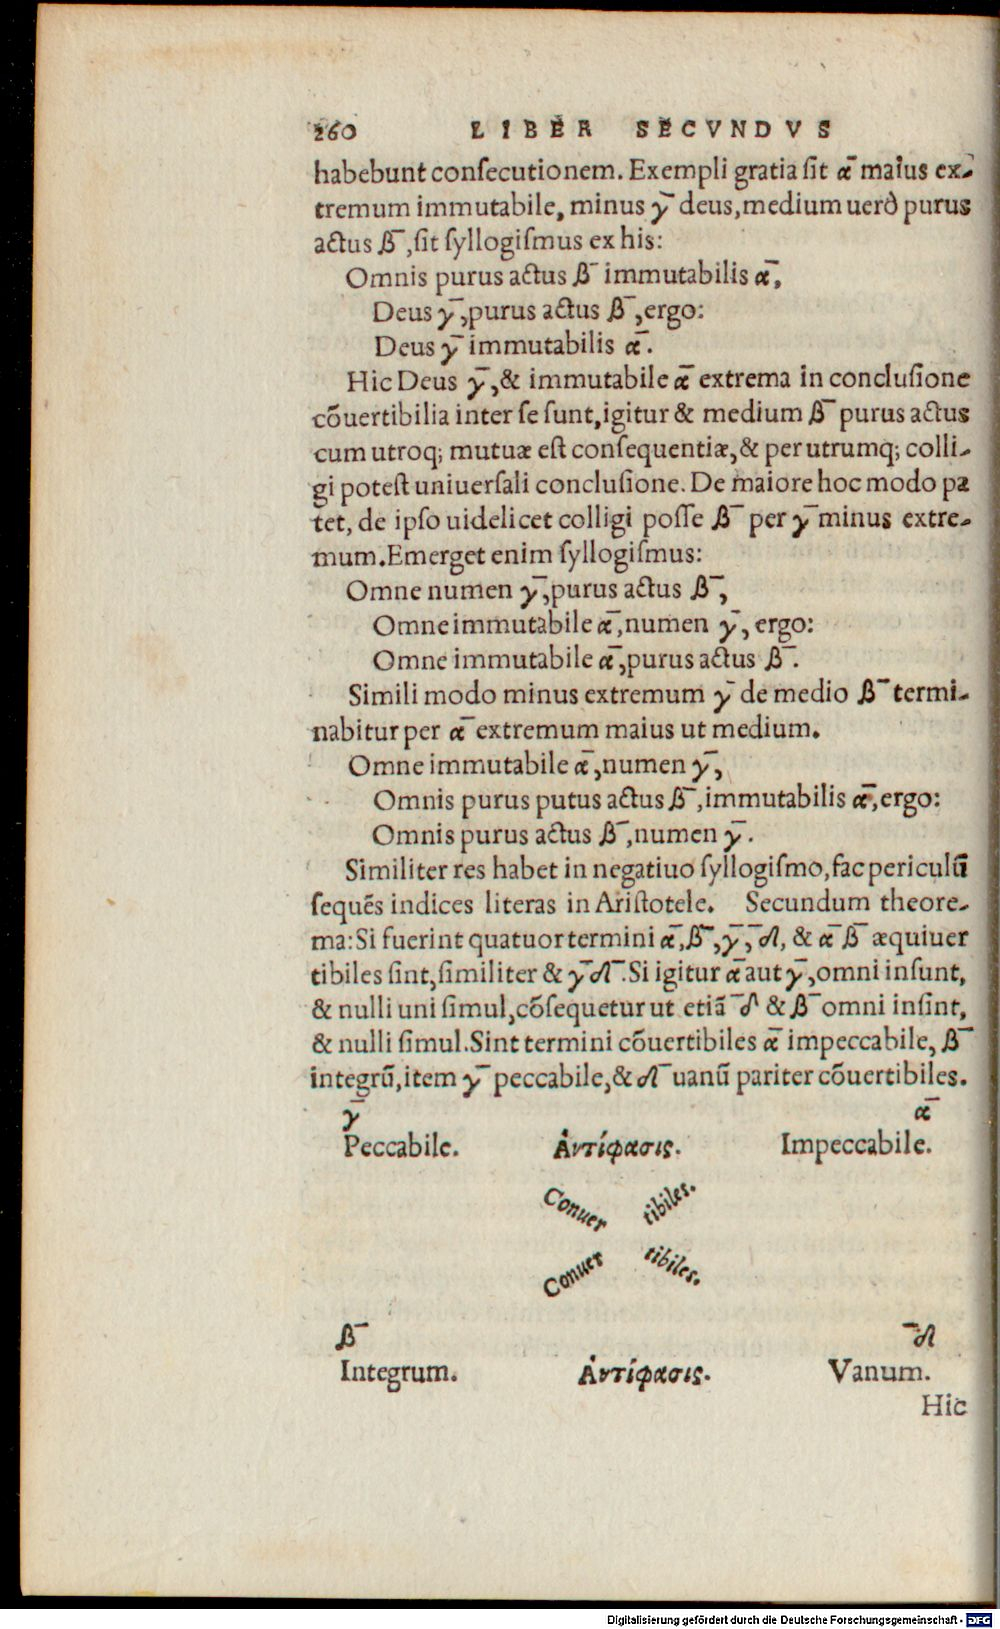 260 LIBER SECVNDVS
habebunt consecutionem. Exempli gratia sit α̅ maius ex-
tremum immutabile, minus γ̅ deus, medium uerò purus
actus β̅, sit syllogismus ex his:
Omnis purus actus β̅ immutabilis α̅,
Deus γ̅, purus actus β̅, ergo:
Deus γ̅ immutabilis α̅.
Hic Deus γ̅, & immutabile α̅ extrema in conclusione
cōuertibilia inter se sunt, igitur & medium β̅ purus actus
cum utroq; mutuæ est consequentiæ, & per utrumq; colli-
gi potest uniuersali conclusione. De maiore hoc modo pa
tet, de ipso uidelicet colligi posse β̅ per γ̅ minus extre-
mum. Emerget enim syllogismus:
Omne numen γ̅, purus actus β̅,
Omne immutabile α̅, numen γ̅, ergo:
Omne immutabile α̅, purus actus β̅.
Simili modo minus extremum γ̅ de medio β̅ termi-
nabitur per α̅ extremum maius ut medium.
Omne immutabile α̅, numen γ̅,
Omnis purus putus actus β̅, immutabilis α̅, ergo:
Omnis purus actus β̅, numen γ̅.
Similiter res habet in negatiuo syllogismo, fac periculū
sequēs indices literas in Aristotele. Secundum theore-
ma: Si fuerint quatuor termini α̅, β̅, γ̅, δ̅, & α̅ β̅ æquiuer
tibiles sint, similiter & γ̅ δ̅. Si igitur α̅ aut γ̅, omni insunt,
& nulli uni simul, cōsequetur ut etiā δ̅ & β̅ omni insint,
& nulli simul. Sint termini cōuertibiles α̅ impeccabile, β̅
integrū, item γ̅ peccabile, & δ̅ uanū pariter cōuertibiles.
γ̅ α̅
Peccabile. Ἀντίφασις. Impeccabile.
Conuer tibiles.
Conuer tibiles.
β̅ δ̅
Integrum. Ἀντίφασις. Vanum.
Hic
Digitalisierung gefördert durch die Deutsche Forschungsgemeinschaft - DFG